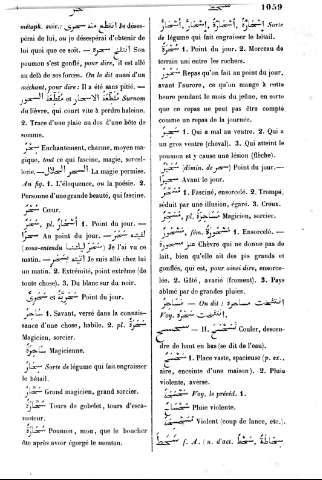 سحر
سحسح
1059
métaph. soir.: انتفخ منه سحرى Je désespérai
pérai de lui, ou je désespérai d'obtenir de
lui quoi que ce soit. — انتفخ سحره Son
poumon s'est gonflé, pour dire, il est allé
au delà de ses forces. On le dit aussi d'un
méchant, pour dire: Il a été saisi pitié. —
Surnom
du lièvre, qui court vite à perdre haleine.
2. Trace d'une plaie au dos d'une bête de
somme.
سِحْرٌ Enchantement, charme, moyen magique,
tout ce qui fascine, magie, sorcellerie.
— السحر الحلال La magie permise.
Au fig. 1. L'éloquence, ou la poésie. 2.
Personne d'une grande beauté, qui fascine.
سُحْرٌ Cœur.
سَحَرٌ, pl. أَسْحَارٌ 1. Point du jour. —
سَحَرًا Au point du jour. —
(sous-entendu ليلتنا) Je l'ai vu ce
matin. — Je suis allé chez lui
un matin. 2. Extrémité, point extrême (de
toute chose). 3. Du blanc sur du noir.
Point du jour.
سَاحِرٌ 1. Savant, versé dans la connaissance
d'une chose, habile. 2. pl.
Magicien, sorcier.
سَاحِرَةٌ Magicienne.
Sorte de légume qui fait engraisser
le bétail.
سَحَّارٌ Grand magicien, grand sorcier.
سَحَّارَةٌ Tours de gobelet, tours d'escamoteur.
سُحَارَةٌ Poumon, mou, que le boucher
ôte après avoir égorgé le mouton.
Sorte
de légume qui fait engraisser le bétail.
سُحْرَةٌ 1. Point du jour. 2. Morceau de
terrain uni entre les rochers.
سَحُورٌ Repas qu'on fait au point du jour,
avant l'aurore, ce qu'on mange à cette
heure pendant le mois du jeûne, en sorte
que ce repas ne peut pas être compté
comme un repas de la journée.
سَحِيرٌ 1. Qui a mal au ventre. 2. Qui a
un gros ventre (cheval). 3. Qui atteint le
poumon et y cause une lésion (flèche).
سُحَيْرٌ (dimin. de سحر) Point du jour. —
سُحَيْرًا Avant le jour.
مُسَحَّرٌ 1. Fasciné, ensorcelé. 2. Trompé,
séduit par une illusion, égaré. 3. Creux.
Magicien, sorcier.
مَسْحُورٌ, fém. مَسْحُورَةٌ 1. Ensorcelé. —
عنز مسحورة Chèvre qui ne donne pas de
lait, bien qu'elle ait des pis grands et
gonflés, qui est, pour ainsi dire, ensorcelée.
2. Gâté, avarié (froment). 3. Pays
abîmé par de grandes pluies.
— On dit:
سحسح — II. تَسَحْسَحَ Couler, descendre
de haut en bas (se dit de l'eau).
سَحْسَحٌ 1. Place vaste, spacieuse (p. ex.,
aire, enceinte d'une maison). 2. Pluie
violente, averse.
Voy. le précéd. 1.
Pluie violente.
Violent (coup de lance, etc.).
سَحَطَ f. A. (n. d'act.